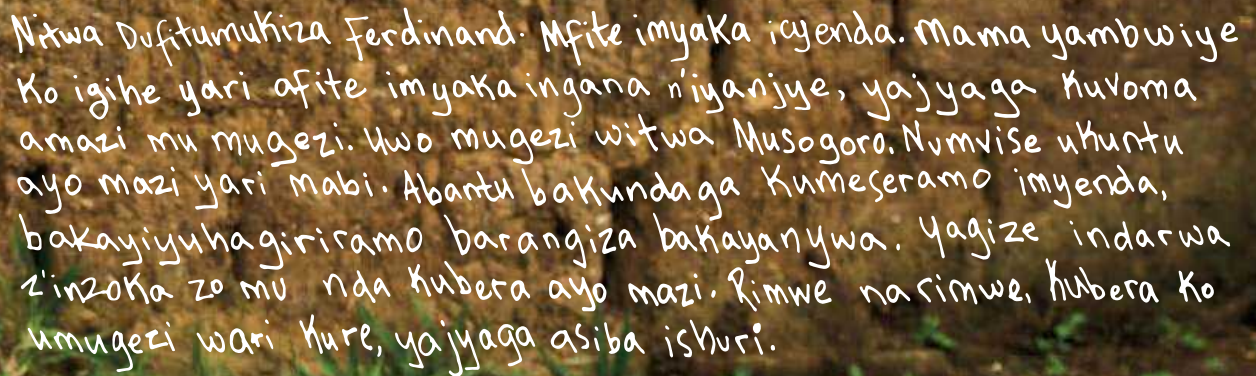 Nitwa Dufitumukiza Ferdinand. Mfite imyaka icyenda. Mama yambwiye
Ko igihe yari afite imyaka ingana n'iyanjye, yajyaga kuvoma
amazi mu mugezi. Uwo mugezi witwa Musogoro. Numvise ukuntu
ayo mazi yari mabi. Abantu bakundaga kumeseramo imyenda,
bakayiyuhagiriramo barangiza bakayanywa. Yagize indarwa
z'inzoka zo mu nda kubera ayo mazi. Rimwe narimwe, kubera ko
umugezi wari kure, yajyaga asiba ishuri.